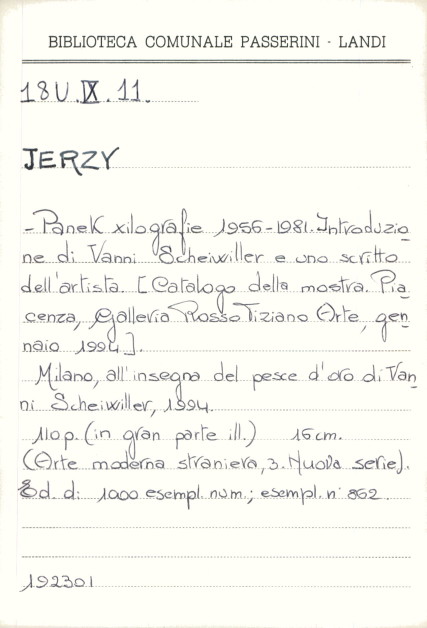 BIBLIOTECA COMUNALE PASSERINI - LANDI
18U.IX.11.
JERZY
- Panek xilografie 1956-1981. Introduzio
ne di Vanni Scheiwiller e uno scritto
dell'artista. [Catalogo della mostra. Pia
cenza, Galleria Rosso Tiziano Arte, gen
naio 1994].
Milano, all'insegna del pesce d'oro di Van
ni Scheiwiller, 1994.
110 p. (in gran parte ill.) 15 cm.
(Arte moderna straniera, 3. Nuova serie).
Ed. di 1000 esempl. num.; esempl. n° 862.
192301